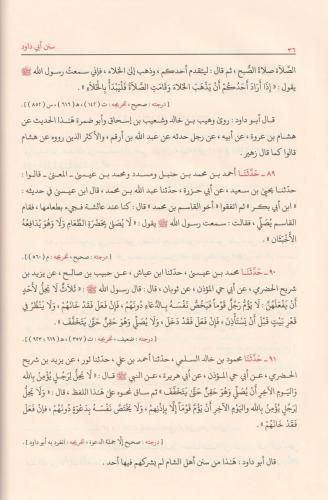 ٣٦ سنن أبي داود
الصَّلَاةَ صلاةَ الصُّبح، ثم قال: ليتقدم أحدكم، وذهب إلى الخلاء، فإني سمعتُ رسول الله ﷺ
يقول: «إذَا أَرَادَ أَحَدُكُمْ أَنْ يَذْهَبَ الخَلَاءَ وَقَامَتِ الصَّلَاةُ فَلْيَبْدَأْ بِالْخَلَاءِ».
[درجته: صحيح، تخريجه: ت (١٤٢)، هـ (٦١٦)، س (٨٥٢)].
قال أبو داود: روى وهيب بن خالد وشعيب بن إسحاق وأبو ضمرة هذا الحديث عن
هشام بن عروة، عن أبيه، عن رجل حدثه عن عبد الله بن أرقم، والأكثر الذين رووه عن هشام
قالوا كما قال زهير.
٨٩ - حَدَّثَنَا أحمد بن محمد بن حنبل ومسدد ومحمد بن عيسى - المعنى - قالوا:
حدَّثنا يحيىٰ بن سعيد، عن أبي حزرة، حدَّثنا عبد الله بن محمد، قال ابن عيسىٰ في حديثه:
«ابن أبي بكر» ثم اتفقوا «أخو القاسم بن محمد» قال: كنا عند عائشة فجيء بطعامها، فقام
القاسم يُصلِّي، فقالت: سمعت رسول الله ﷺ يقول: «لَا يُصَلَّى بِحَضْرَةِ الطَّعَامِ وَلَا وَهُوَ يُدَافِعُهُ
الْأَخْبَثَانِ».
[درجته: صحيح، تخريجه: م (٥٦٠)].
٩٠ - حَدَّثَنَا محمد بن عيسىٰ، حدثنا ابن عياش، عن حبيب بن صالح، عن يزيد بن
شريح الحضرمي، عن أبي حي المؤذن، عن ثوبان، قال: قال رسول الله ﷺ: «ثَلَاثٌ لَا يَحِلُّ لِأَحَدٍ
أَنْ يَفْعَلَهُنَّ: لَا يَؤُمُّ رَجُلٌ قَوْماً فَيَخُصُّ نَفْسَهُ بِالدُّعَاءِ دُونَهُمْ، فَإِنْ فَعَلَ فَقَدْ خَانَهُمْ، وَلَا يَنْظُرُ فِي
قَعْرِ بَيْتٍ قَبْلَ أَنْ يَسْتَأْذِنَ، فَإِنْ فَعَلَ فَقَدْ دَخَلَ، وَلَا يُصَلِّي وَهُوَ حَقِنٌ حَتَّى يَتَخَفَّفَ».
[درجته: ضعيف، تخريجه: ت (٣٥٧)، هـ (٦١٩، ٩٢٣)].
٩١ - حَدَّثَنَا محمود بن خالد السلمي، حدثنا أحمد بن علي، حدثنا ثور، عن يزيد بن شريح
الحضرمي، عن أبي حي المؤذن، عن أبي هريرة، عن النبي ﷺ قال: «لَا يَحِلُّ لِرَجُلٍ يُؤْمِنُ بِاللهِ
وَالْيَومِ الآخِرِ أَنْ يُصَلِّيَ وَهُوَ حَقِنٌ حَتَّى يَتَخَفَّفَ» ثم ساق نحوه على هذا اللفظ، قال: «وَلَا يَحِلُّ
لِرَجُلٍ يُؤْمِنُ بِاللهِ وَاليَومِ الآخِرِ أَنْ يَؤُمَّ قَوْماً إلَّا بِإِذْنِهِمْ، وَلَا يَخْتَصُّ نَفْسَهُ بِدَعْوَةٍ دُونَهُمْ، فَإِنْ فَعَلَ
فَقَدْ خَانَهُمْ».
[درجته: صحيح إلَّا جملة الدعوة، تخريجه: انفرد به أبو داود].
قال أبو داود: هٰذا من سنن أهل الشام لم يشركهم فيها أحد.